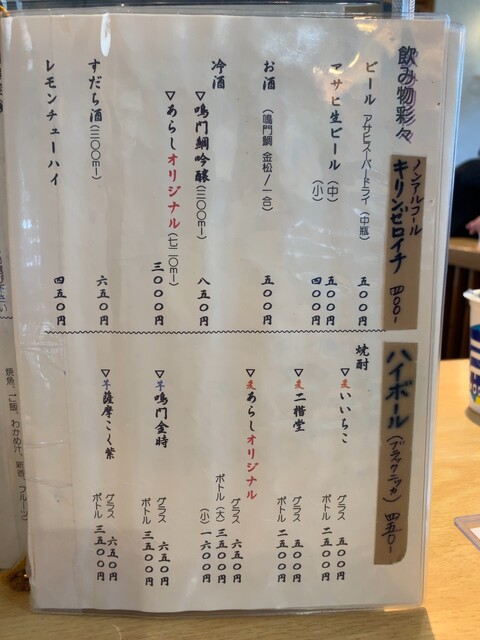 飲み物彩々
ノンアルコール
キリンゼロイチ 四〇〇-
ビール アサヒスーパードライ(中瓶) 五〇〇円
アサヒ生ビール(中) 五〇〇円
(小) 四〇〇円
お酒 (鳴門鯛 金松/一合) 五〇〇円
冷酒
▽鳴門鯛吟醸(三〇〇ml) 八五〇円
▽あらしオリジナル(七二〇ml) 三〇〇〇円
すだち酒(三〇〇ml) 六五〇円
レモンチューハイ 四五〇円
ハイボール(ブラックニッカ) 四五〇-
焼酎
▽麦いいちこ グラス 五〇〇円
ボトル 二五〇〇円
▽麦二階堂 グラス 五〇〇円
ボトル 二五〇〇円
▽麦あらしオリジナル グラス 六五〇円
ボトル(大) 三五〇〇円
(小) 一六〇〇円
▽芋鳴門金時 グラス 六五〇円
ボトル 三五〇〇円
▽芋薩摩こく紫 グラス 六五〇円
ボトル 三五〇〇円
焼魚、ご飯、わかめ汁、新香、フルーツ